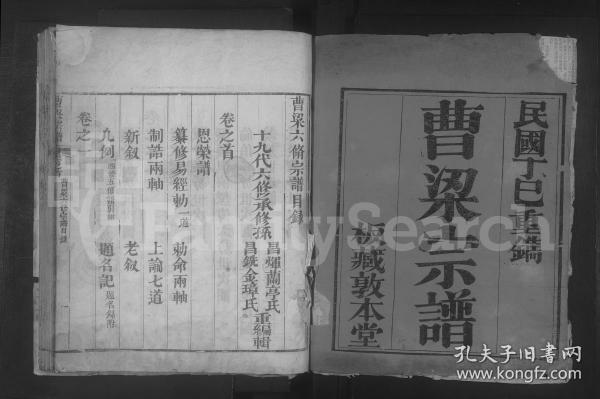 民國丁巳重鐫
曹梁宗譜
板藏敦本堂
曹梁六脩宗譜目錄
十九代六修承修孫
昌燿蘭亭氏
昌銑金璋氏
重編輯
卷之首
恩榮譜
纂修易經勅一道
勅命兩軸
制誥兩軸
上諭七道
新敘
老敘
凡例
題名記
卷之一
FamilySearch
孔夫子旧书网
www.kongfz.com